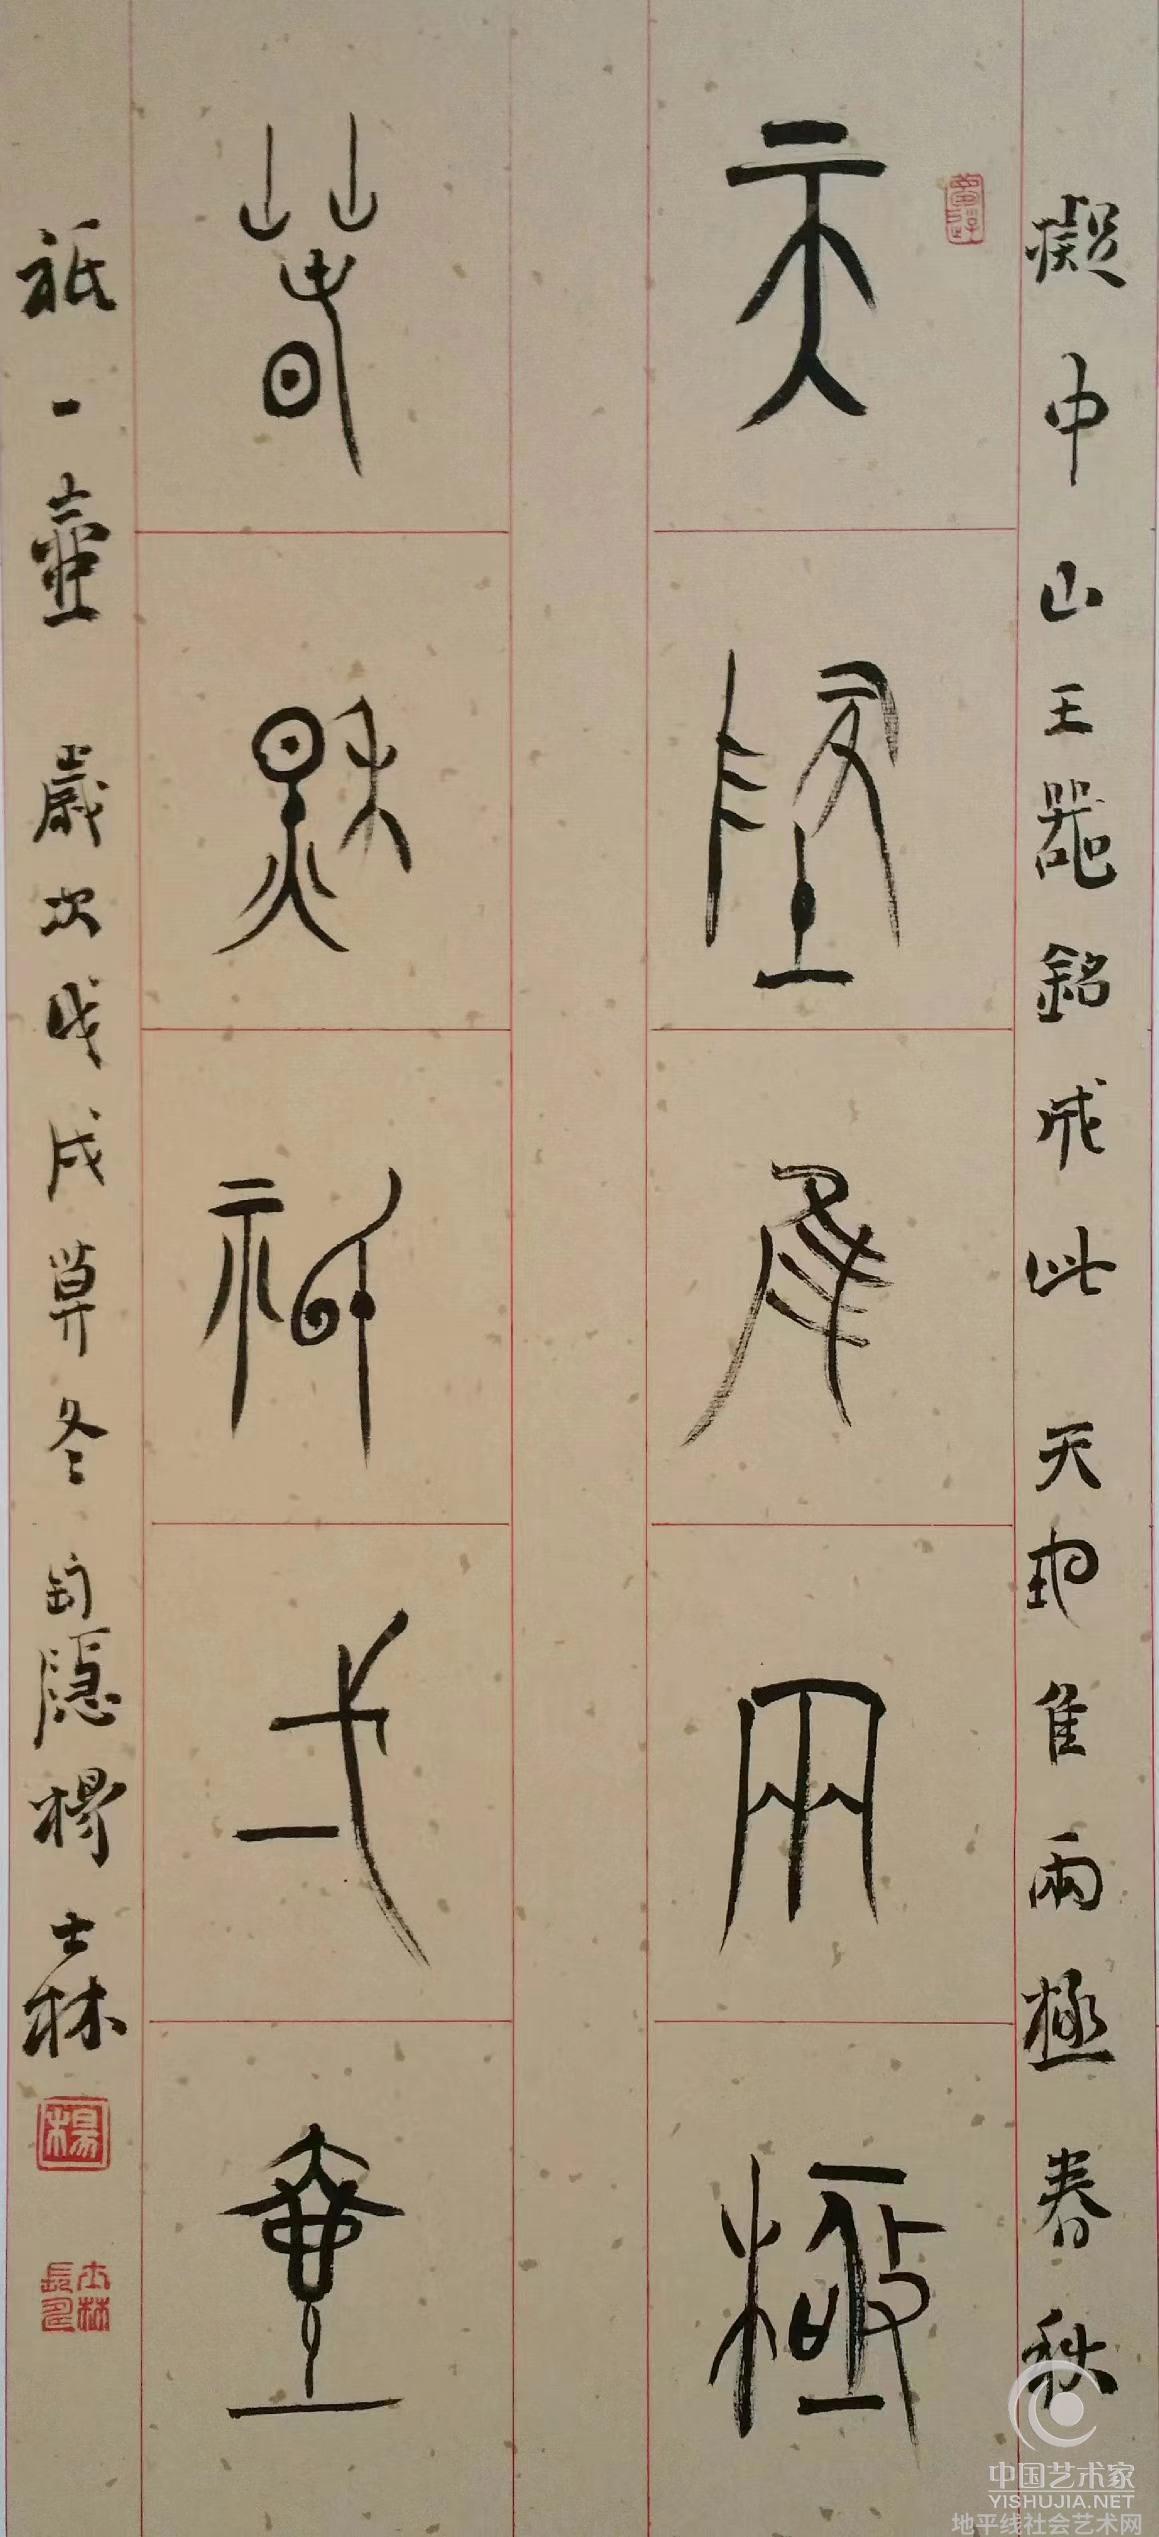 擬中山王器銘成此 天地隹兩極春秋
天地隹兩極
春秋祇一壺
祇一壺 歲次戊戌草冬 隱楊士林
楊
中国艺术家
YISHUJIA.NET
地平线社会艺术网